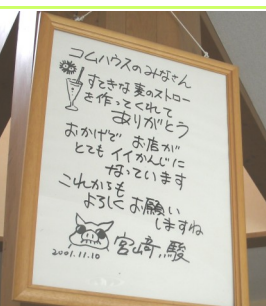 コムハウスのみなさん
すてきな麦のストロー
を作ってくれて
ありがとう
おかげで お店が
とても イイかんじに
なっています
これからも
よろしく お願い
しますね
宮﨑 駿
2001.11.10